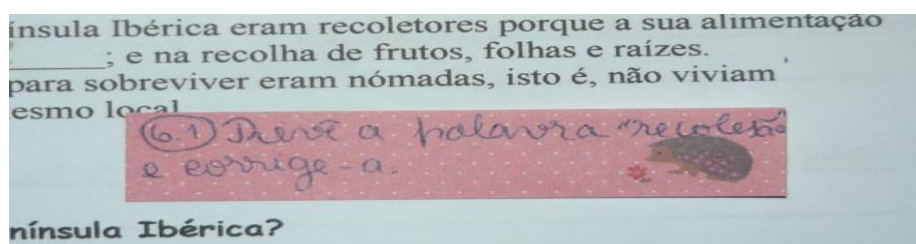 ínsula Ibérica eram recoletores porque a sua alimentação
; e na recolha de frutos, folhas e raízes.
para sobreviver eram nómadas, isto é, não viviam
esmo local
6.1) a palavra "recolesão
e corrige-a.
nínsula Ibérica?